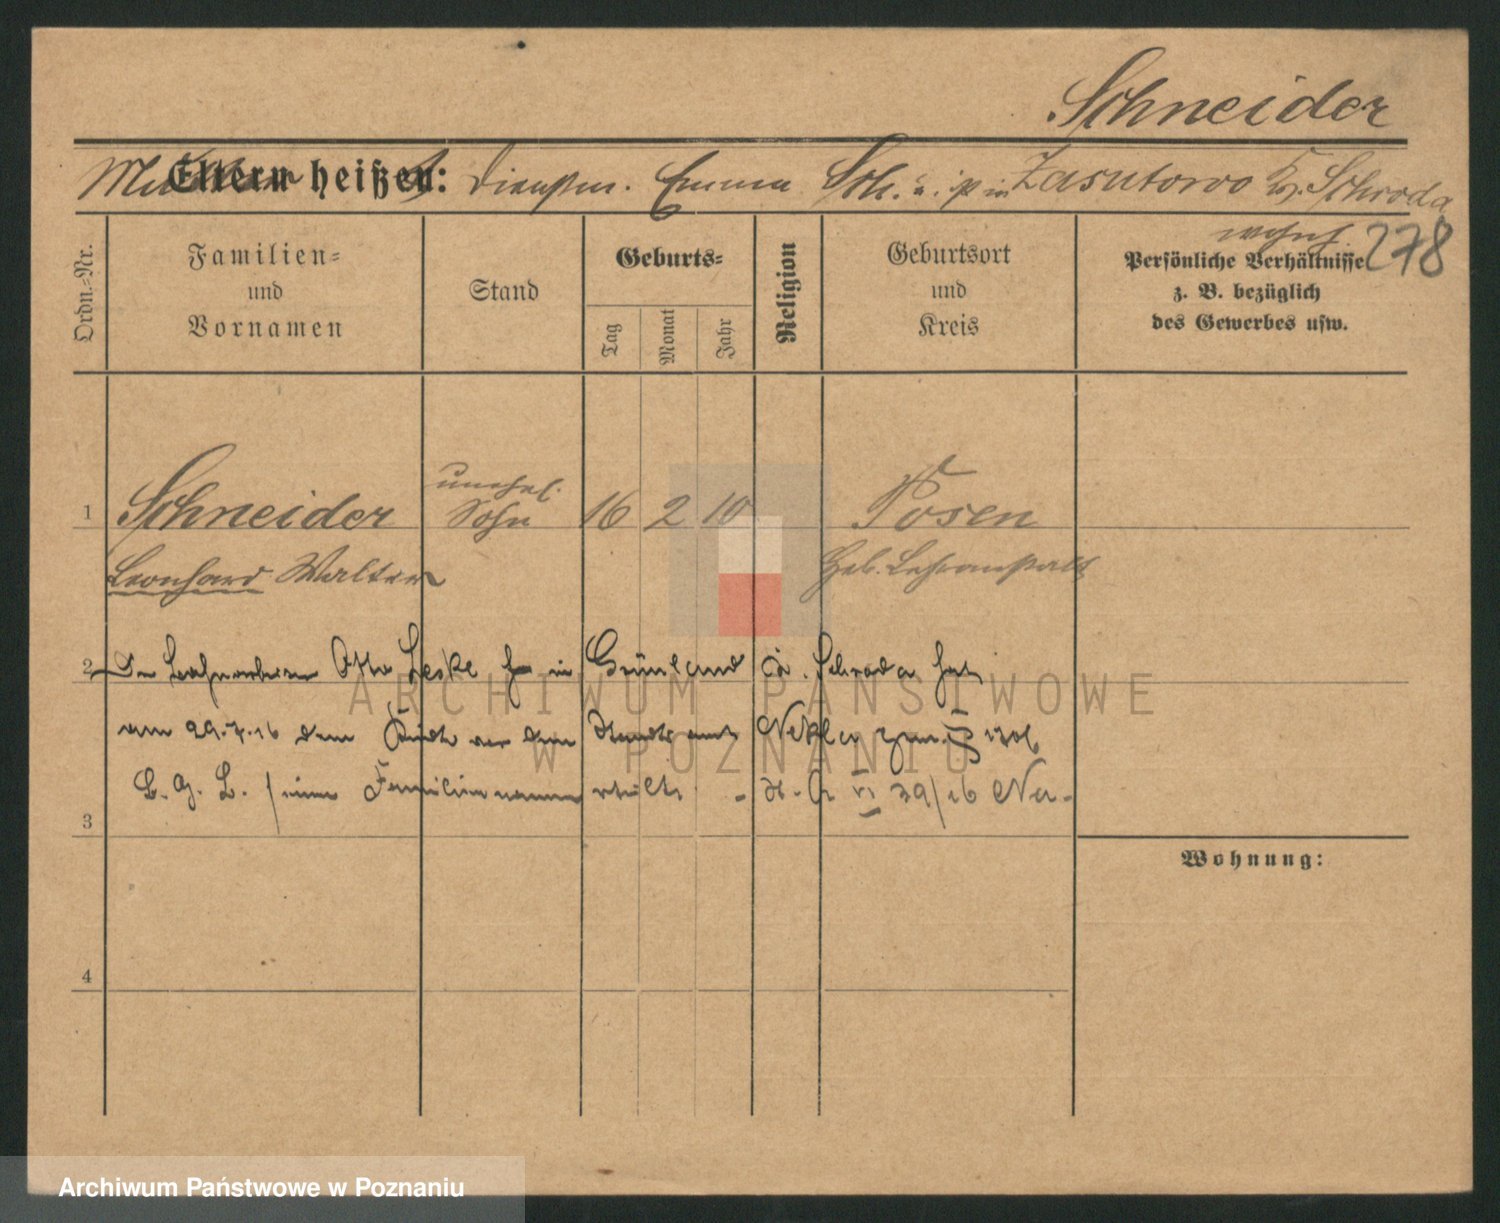 Schneider
Eltern heißen: Dienstm. Emma Sch. u. ist in Zasutowo Kr. Schroda
wohnh. 278
Ordn.-Nr.
Familien- und Vornamen
Stand
Geburts-
Tag
Monat
Jahr
Religion
Geburtsort und Kreis
Persönliche Verhältnisse z. B. bezüglich des Gewerbes usw.
1 Schneider unehel. Sohn 16 2 10 Posen
Leonhard Walter Heb. Lehranstalt
2 Der Bahnarbeiter Otto Leske in Grünland Schroda hat
am 29.7.16 dem Kinde vor dem Standesamt Nekla gem. § 1706
B. G. B. seinen Familiennamen erteilt. 39/16
3
Wohnung:
4
ARCHIWUM PAŃSTWOWE
W POZNANIU
Archiwum Państwowe w Poznaniu